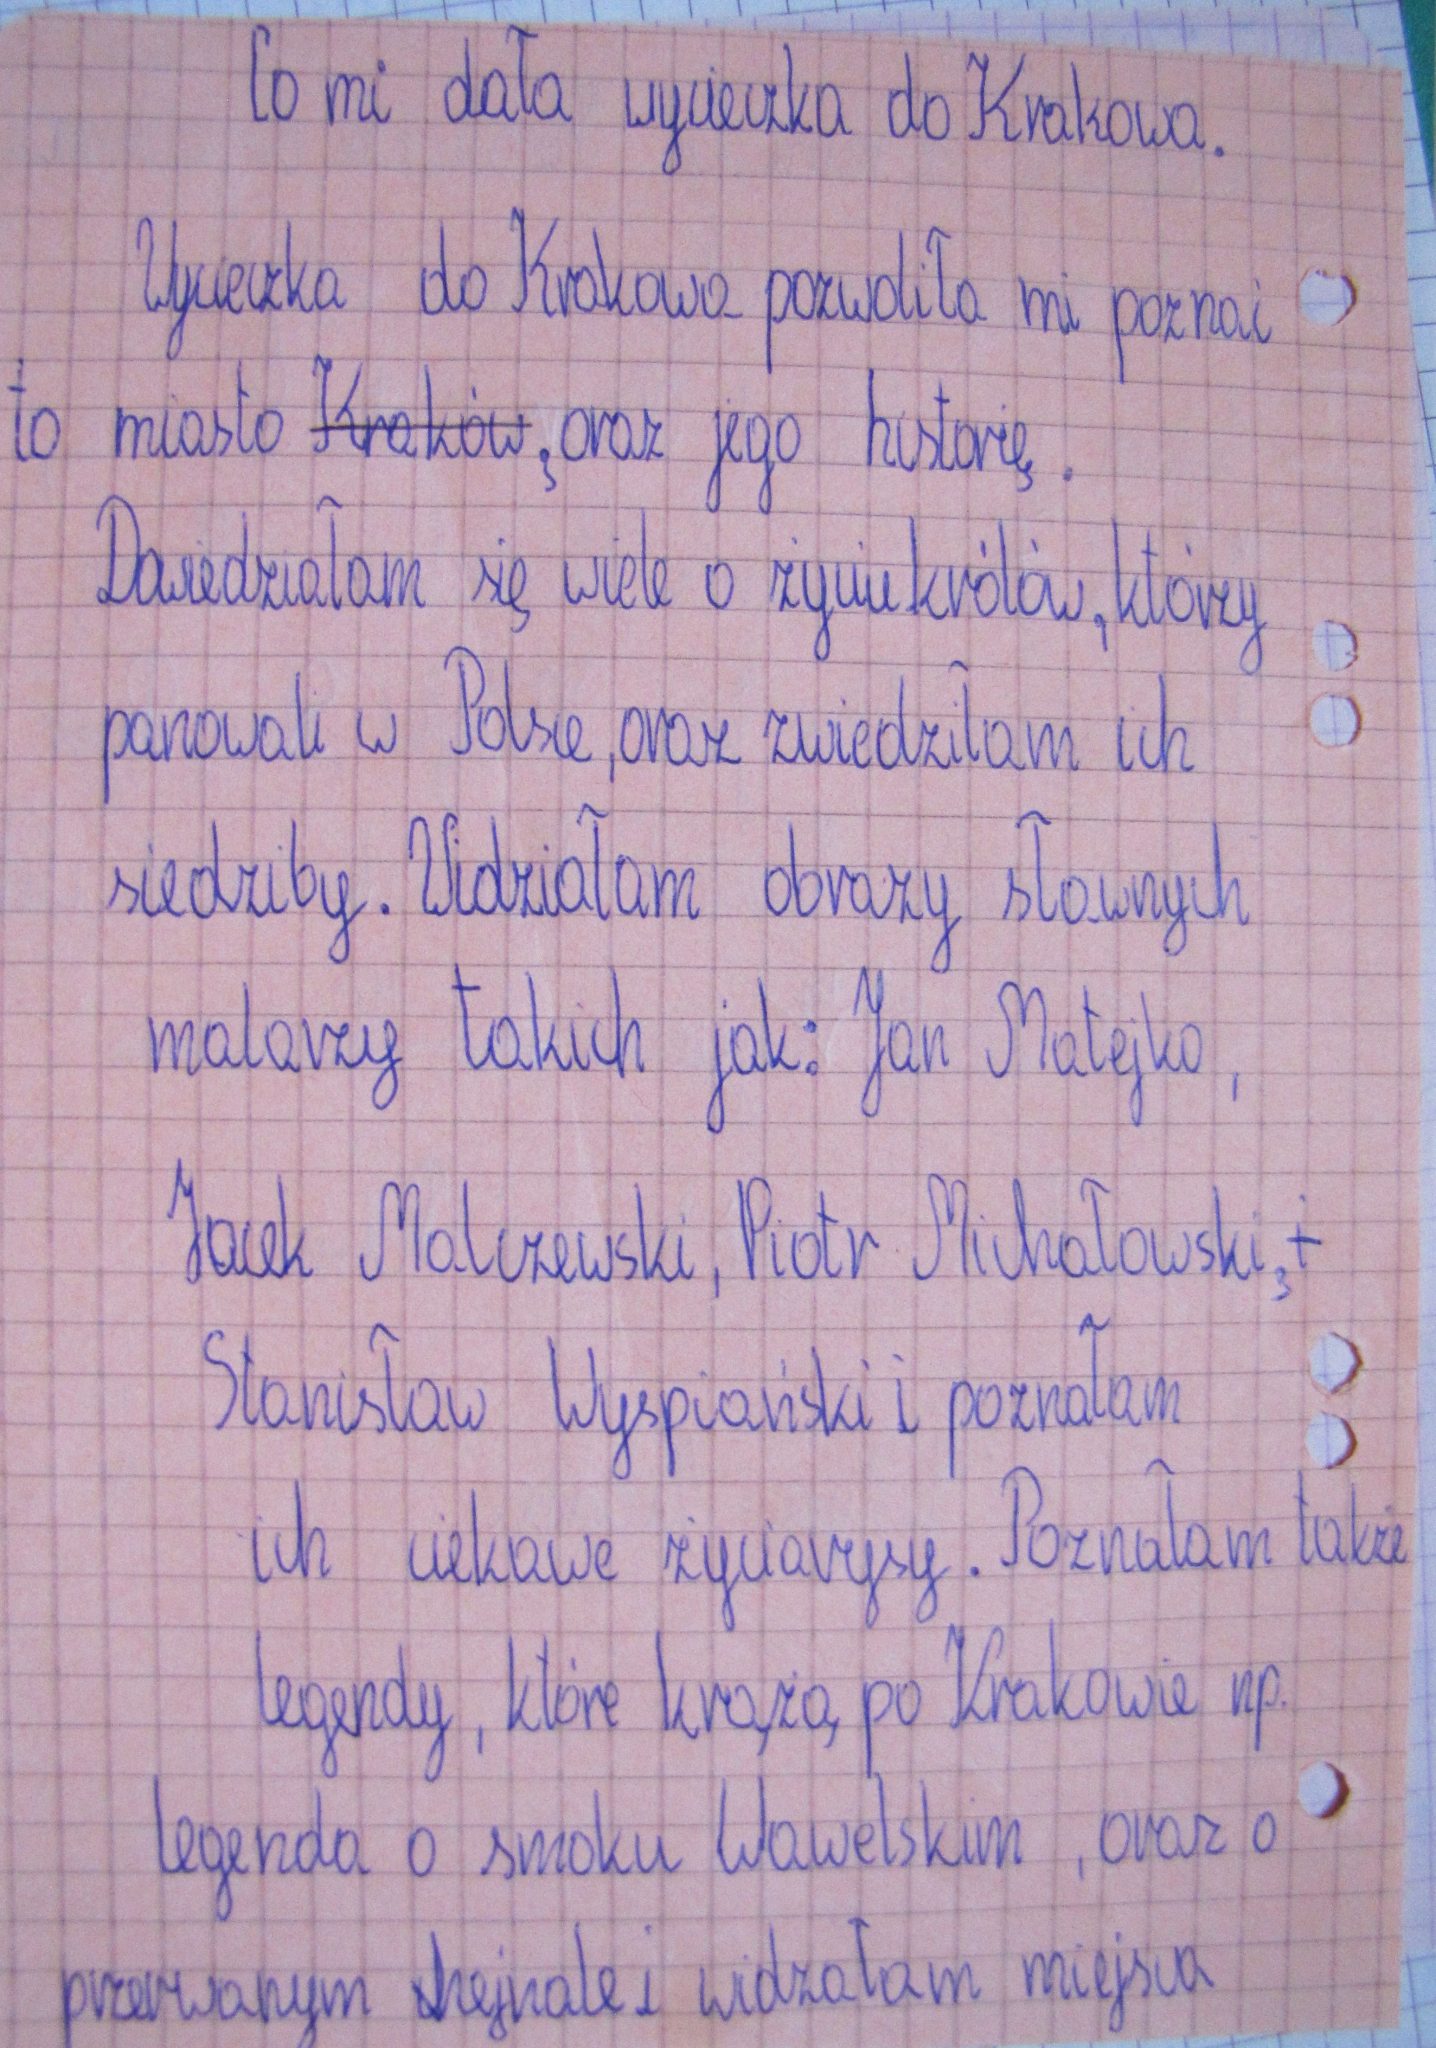 Co mi dała wycieczka do Krakowa.
Wycieczka do Krakowa pozwoliła mi poznać
to miasto Kraków, oraz jego historię.
Dowiedziałam się wiele o życiu królów, którzy
panowali w Polsce, oraz zwiedziłam ich
siedziby. Widziałam obrazy sławnych
malarzy takich jak: Jan Matejko,
Jacek Malczewski, Piotr Michałowski, i
Stanisław Wyspiański i poznałam
ich ciekawe życiarysy. Poznałam także
legendy, które krążą po Krakowie np.
legenda o smoku Wawelskim, oraz o
przerwanym hejnale i widzałam miejsca